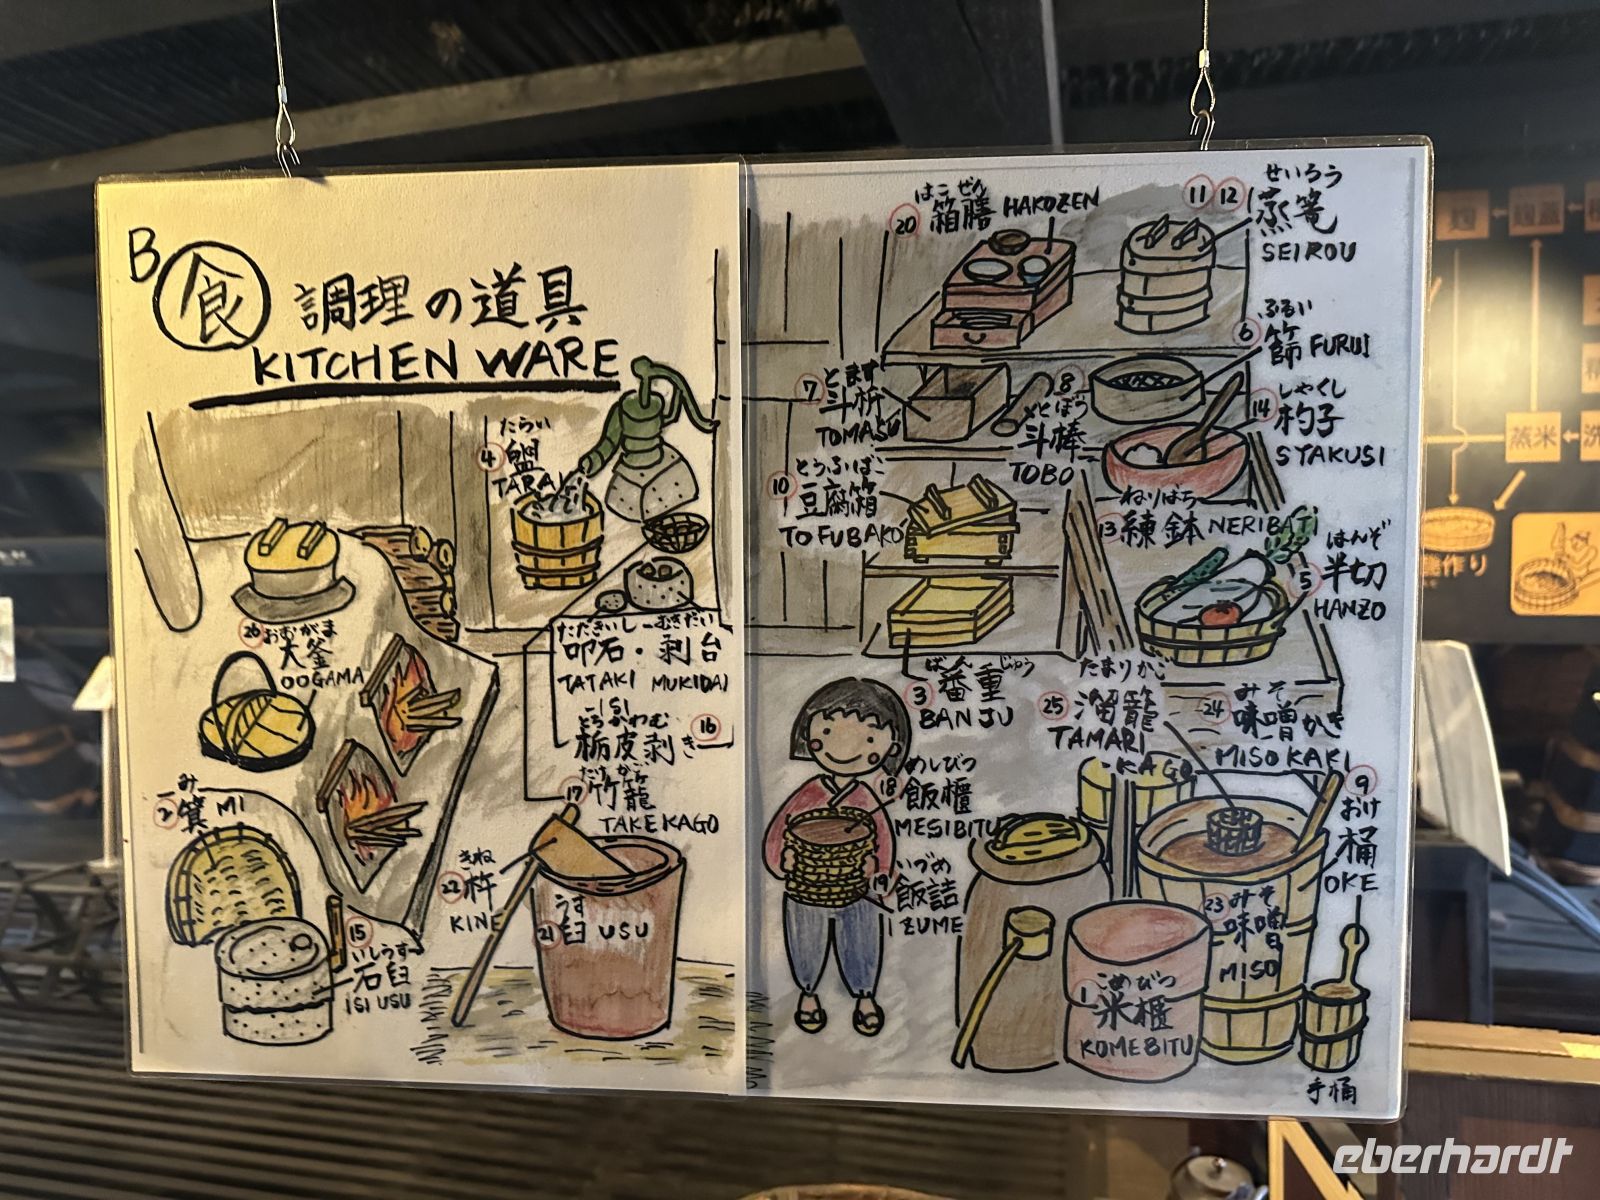 B 食 調理の道具
KITCHEN WARE
たらい
4 盥
TARAI
26 おおがま
大釜
OOGAMA
たたきいし むきだい
叩石・剥台
TATAKI MUKIDAI
ISI
とちかわむ
栃皮剥き 16
み
2 箕 MI
たけかご
17 竹籠
TAKEKAGO
きね
22 杵
KINE
うす
21 臼 USU
15
いしうす
石臼
ISI USU
はこぜん
20 箱膳 HAKOZEN
せいろう
11 12 蒸篭
SEIROU
ふるい
6 篩 FURUI
とます
7 斗枡
TOMASU
8
とぼう
斗棒
TOBO
しゃくし
14 杓子
SYAKUSI
とうふばこ
10 豆腐箱
TOFUBAKO
ねりばち
13 練鉢 NERIBATI
はんぞ
5 半切
HANZO
ばんじゅう
3 番重
BANJU
たまりかご
25 溜籠
TAMARI
KAGO
みそ
24 味噌かき
MISOKAKI
めしびつ
18 飯櫃
MESIBITU
いづめ
19 飯詰
IZUME
9
おけ
桶
OKE
23 みそ
味噌
MISO
こめびつ
1 米櫃
KOMEBITU
手桶
蒸米
作り
eberhardt